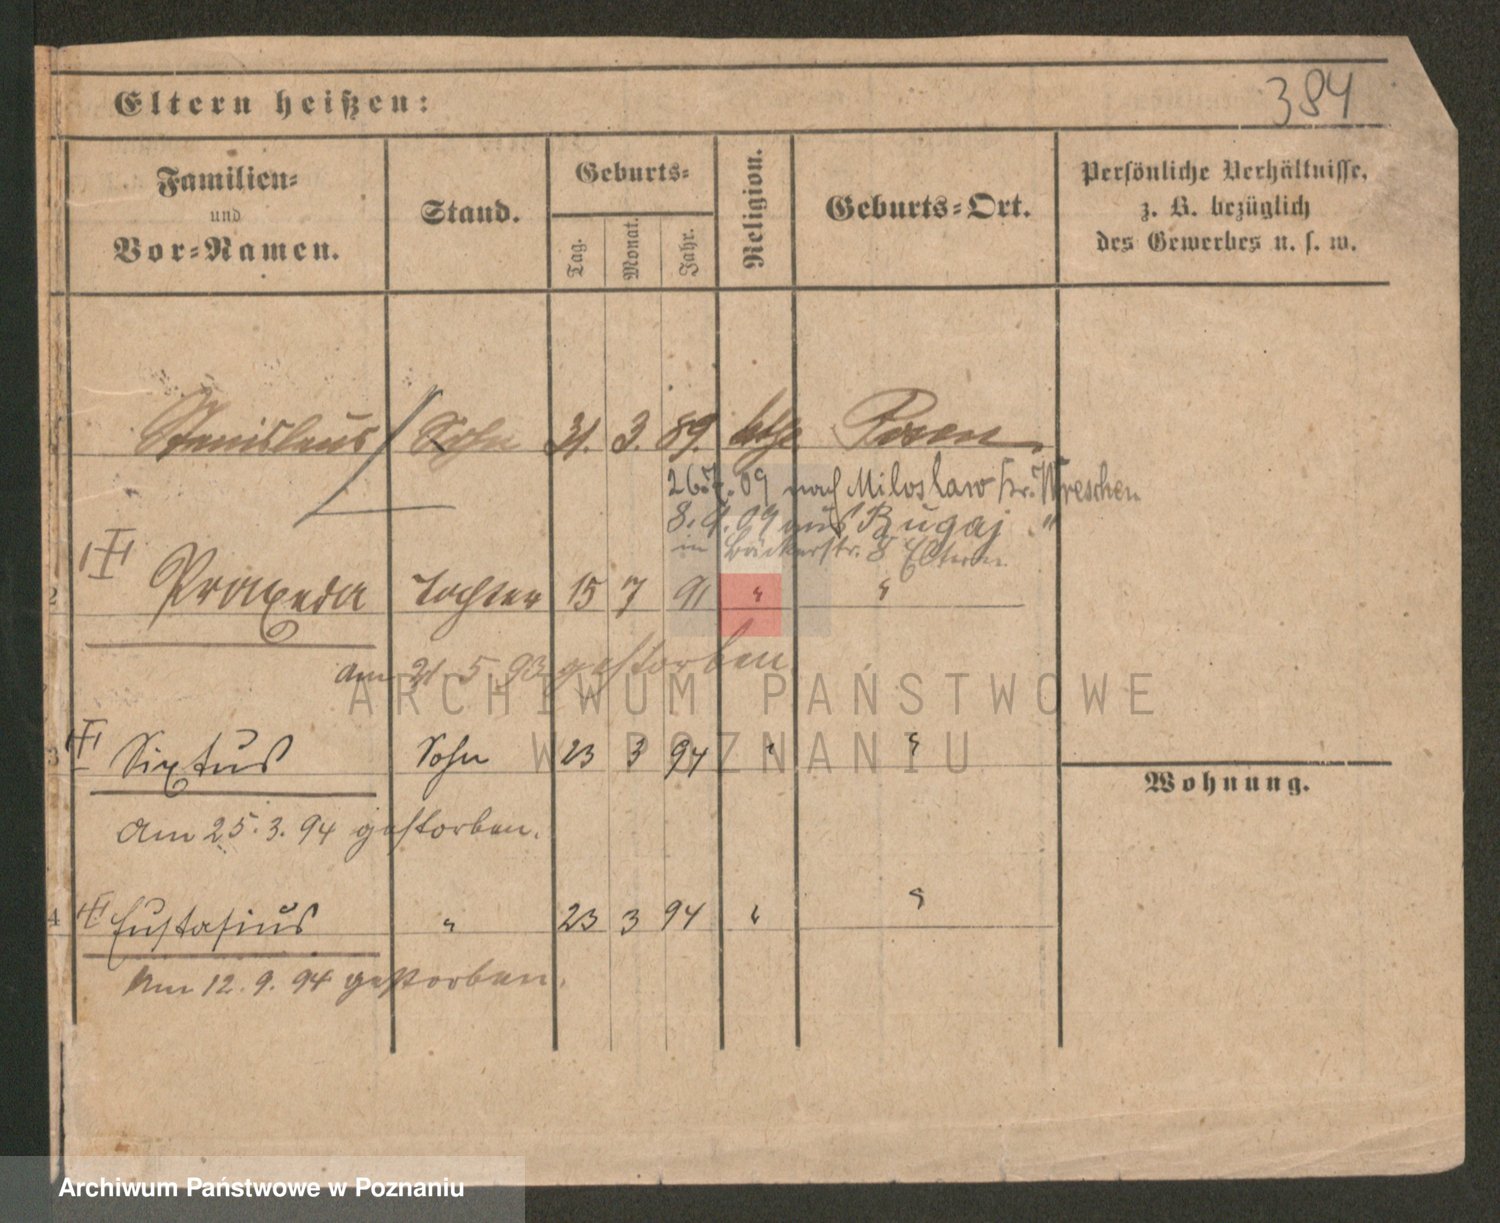 384
Eltern heißen:
Familien-
und
Vor-Namen.
Stand.
Geburts-
Tag.
Monat.
Jahr.
Religion.
Geburts-Ort.
Persönliche Verhältnisse,
z. B. bezüglich
des Gewerbes u. s. w.
Stanislaus Sohn 31. 3. 89. kath. Posen
26.7.09 nach Miloslaw Kr. Wreschen
8. 9. 09 aus Bugaj "
in Bäckerstr. 8 Eltern
2 Praxeda Tochter 15 7 91 " "
am 21 5 93 gestorben
3 Sixtus Sohn 23 3 94 " "
Am 25. 3. 94 gestorben.
4 Eustasius " 23 3 94 " "
Am 12. 9. 94 gestorben.
Wohnung.
ARCHIWUM PAŃSTWOWE
W POZNANIU
Archiwum Państwowe w Poznaniu